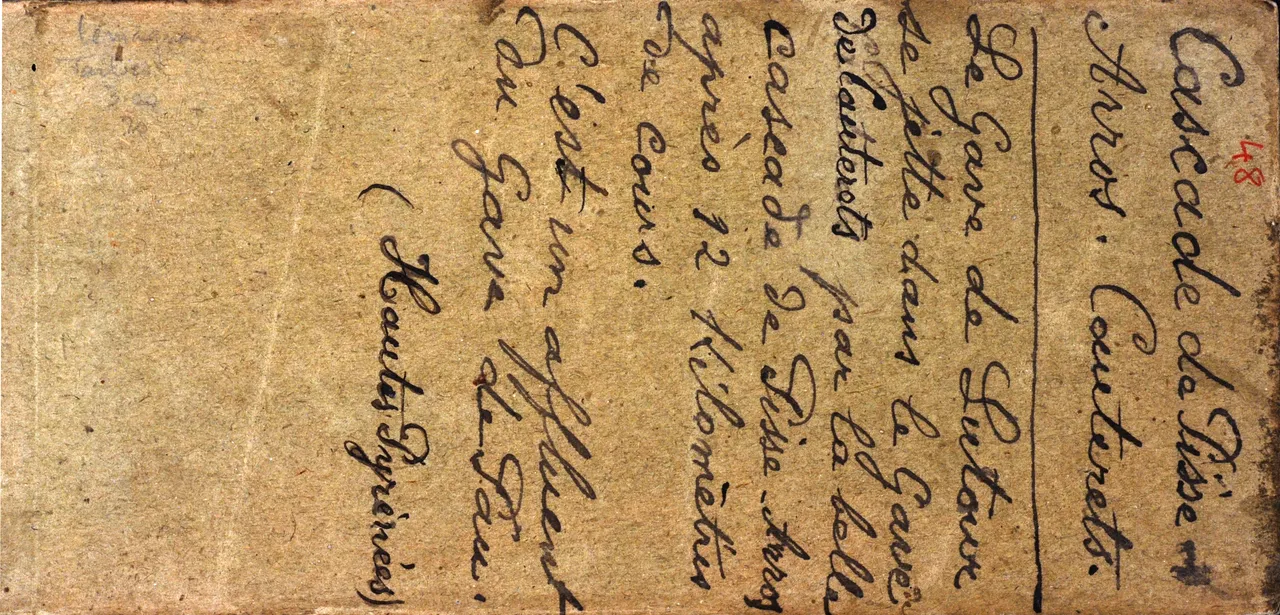 48
Cascade de Pisse
Arros. Cauterets.
Le Gave de Lutour
se jette dans le Gave
de Cauterets par la belle
Cascade de Pisse-Arros
après 12 Kilomètres
de cours.
C'est un affluent
du Gave de Pau.
(Hautes Pyrénées)